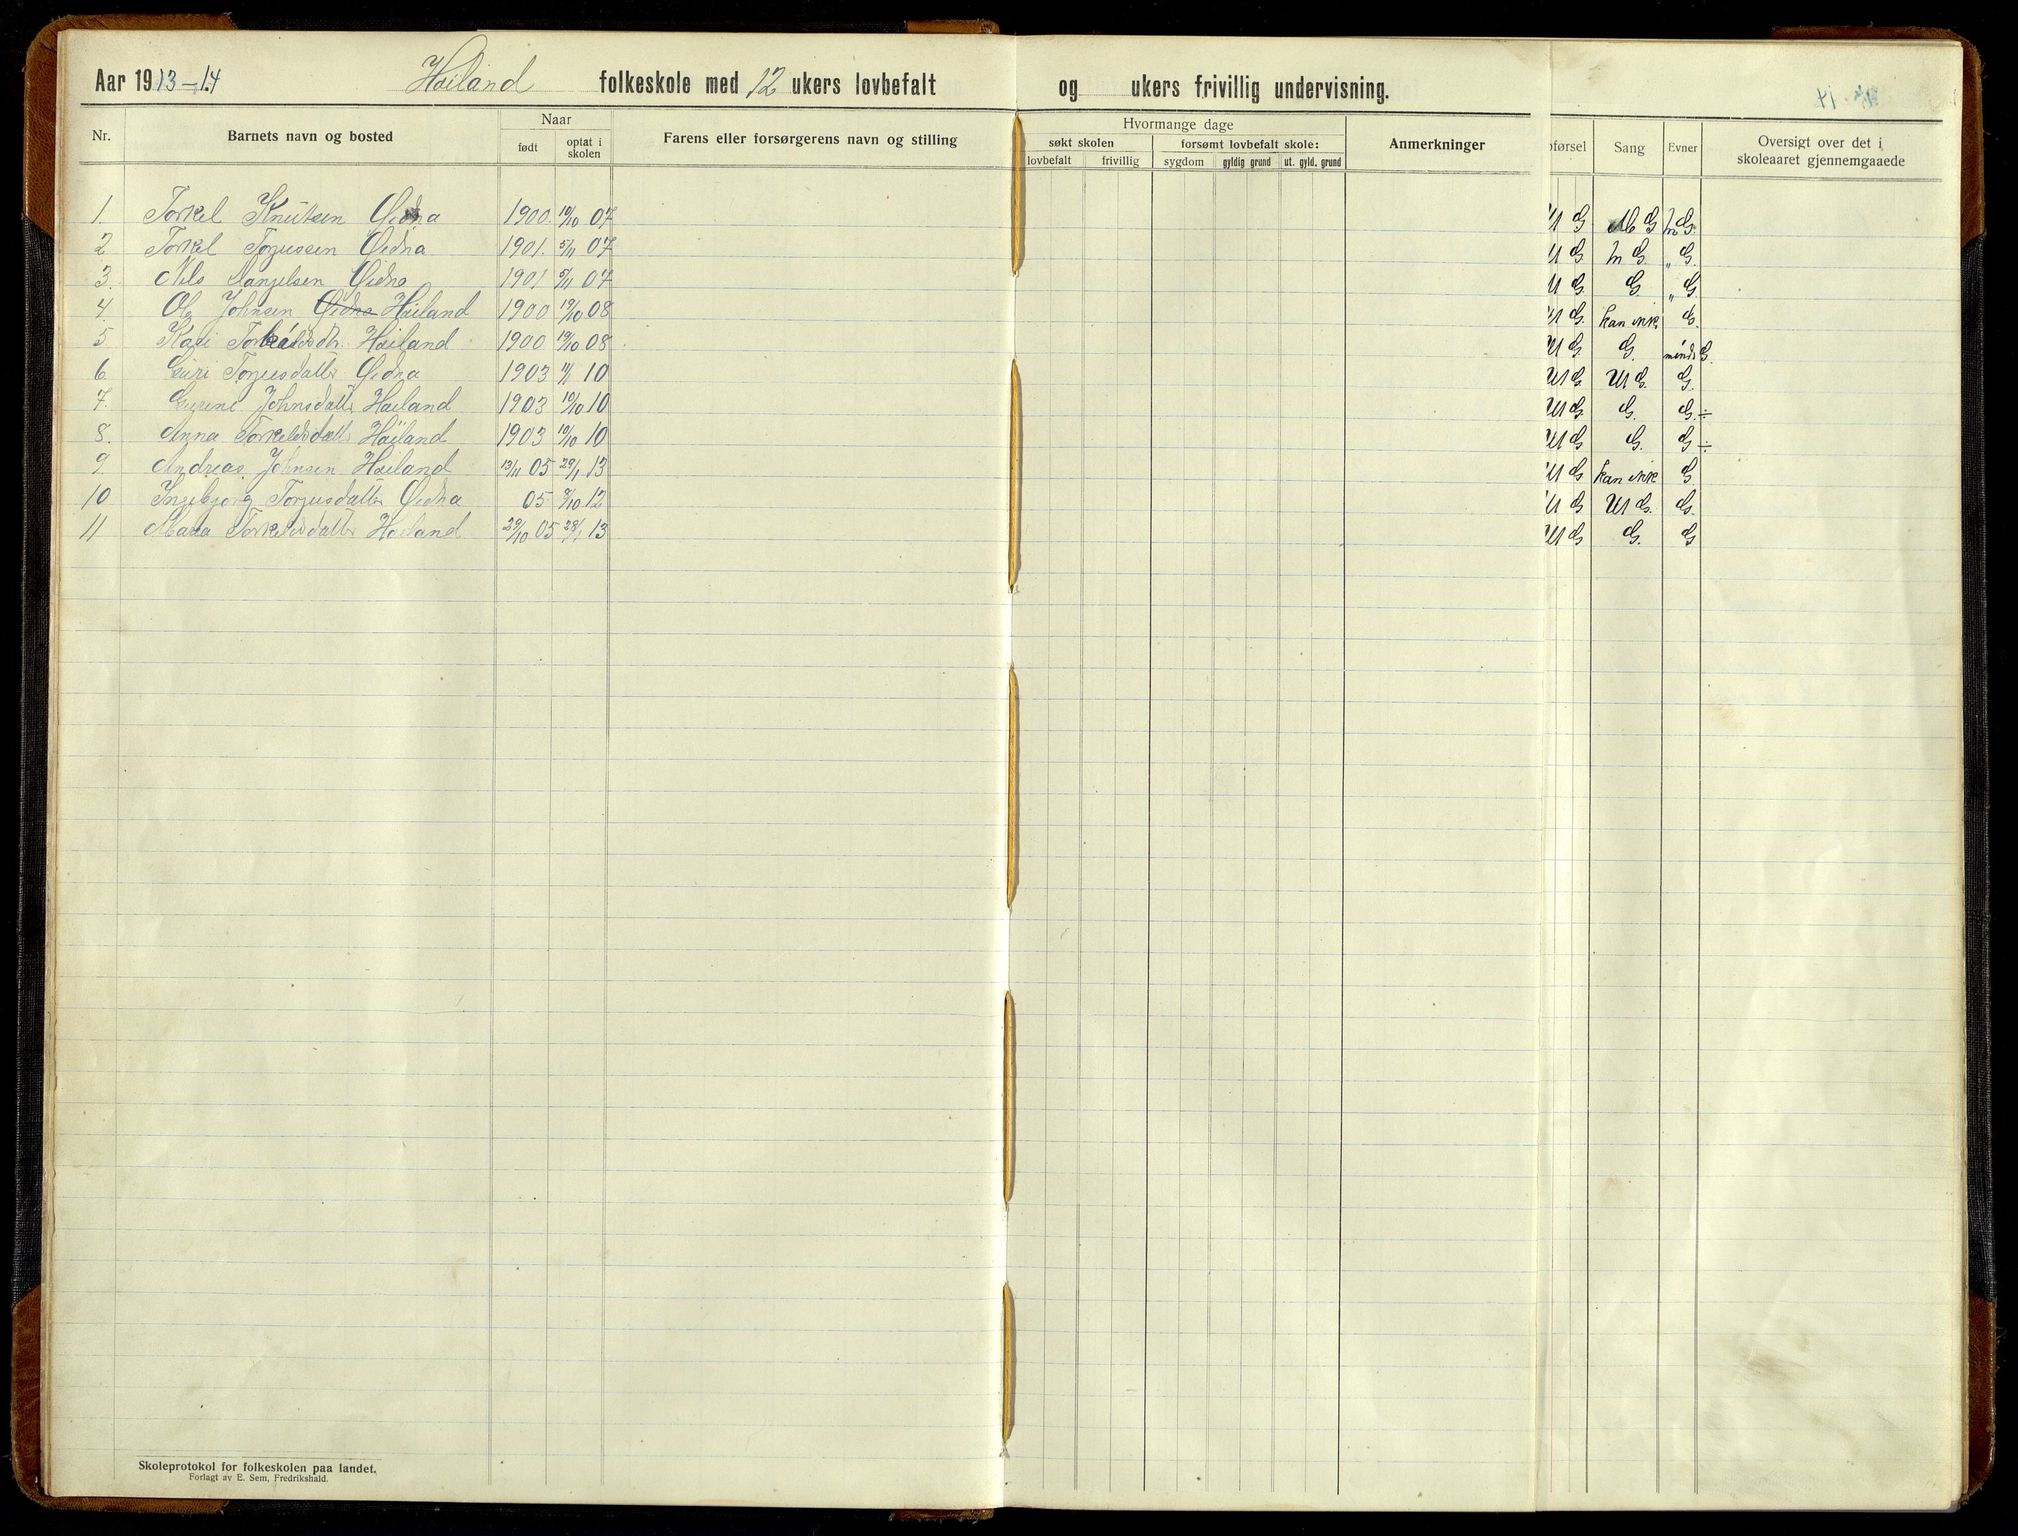 Aar 1913-14 Høiland folkeskole med 12 ukers lovbefalt og ukers frivillig undervisning.
Nr. Barnets navn og bosted Naar Farens eller forsørgerens navn og stilling Hvormange dage Anmerkninger
født optat i skolen søkt skolen forsømt lovbefalt skole:
lovbefalt frivillig sygdom gyldig grund ut. gyld. grund
førsel Sang Evner Oversigt over det i
skoleaaret gjennemgaaede
1. Torkel Knutsen Øidna 1900. 19/10 07 M G M G.
2 Torkel Torjussen Øidna 1901. 5/11 07 M G. " G.
3. Nils Danjelsen Øidna 1901 07 G. " G
4. Ole Johnsen Øidna Høiland 1900 19/10 08 kan ikke G.
5 Kari Torkelsdtr. Høiland 1900 19/10 08 G. mindre G.
6 Guri Torjusdatter Øidna 1903 10 Ut G Ut G. G.
7. Gurine Johnsdatter Høiland 1903 19/10 10 Ut G G. G. ÷
8. Anna Torkelsdatter Høiland 1903 19/10 10 Ut G G. G ÷
9. Andreas Johnsen Høiland 13/11 05 29/1 13 Ut G kan ikke G.
10 Ingebjørg Torjusdatter Øidna 05 12 Ut G Ut G. G.
11 Maria Torkelsdatter Høiland 29/10 05 28/1 13 Ut G G. G
Skoleprotokol for folkeskolen paa landet.
Forlagt av E. Sem, Fredrikshald.